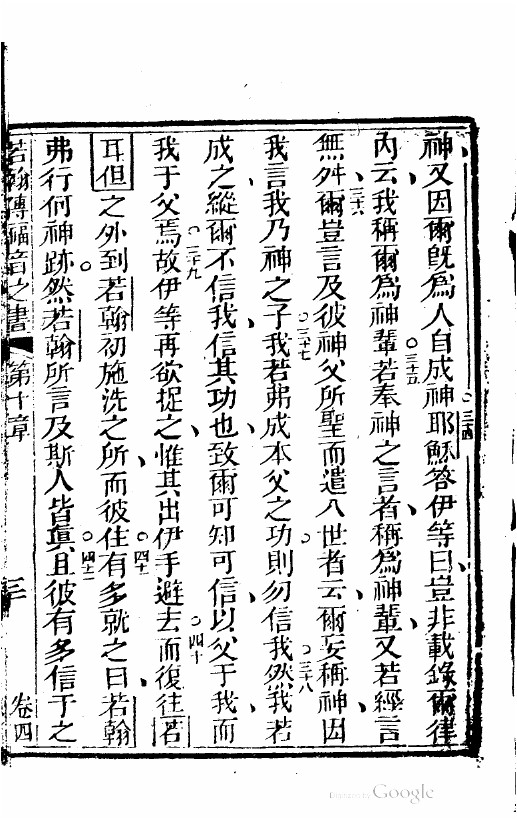 神又因爾既為人自成神耶穌答伊等曰豈非載錄爾律
三十四
內云我稱爾為神輩若奉神之言者稱為神輩又若經言
三十五
無舛爾豈言及彼神父所聖而遣入世者云爾妄稱神因
三十六
我言我乃神之子我若弗成本父之功則勿信我然我若
三十七
三十八
成之縱爾不信我信其功也致爾可知可信以父于我而
我于父焉故伊等再欲捉之惟其出伊手避去而復往若
三十九
四十
耳但之外到若翰初施洗之所而彼住有多就之曰若翰
四十一
弗行何神跡然若翰所言及斯人皆真且彼有多信于之
四十二
若翰傳福音之書 第十章 三 卷四
Digitized by Google